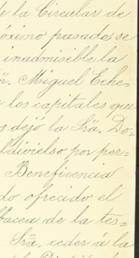 de la Circular de
óximo pasado se
inadmisible la
ñr. Miguel Eche-
los capitales que
dejó la Sra. Do-
ldivielso por per-
Beneficencia
do ofrecido el
bacea de la tes-
Sra, ceder á la